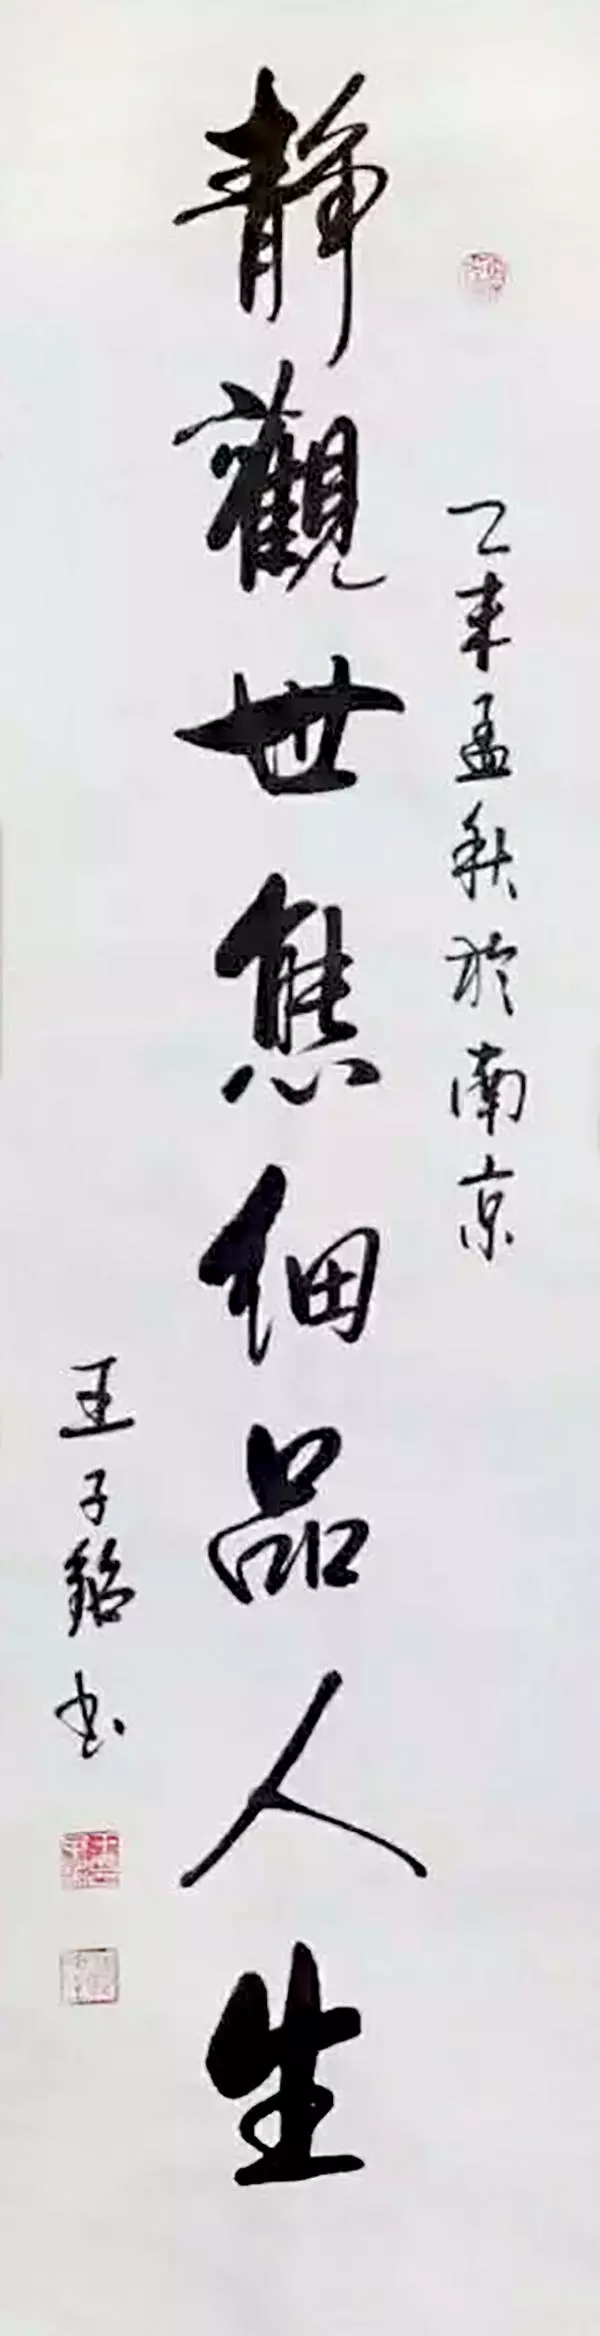 乙未孟秋於南京
靜觀世態細品人生
王子銘书